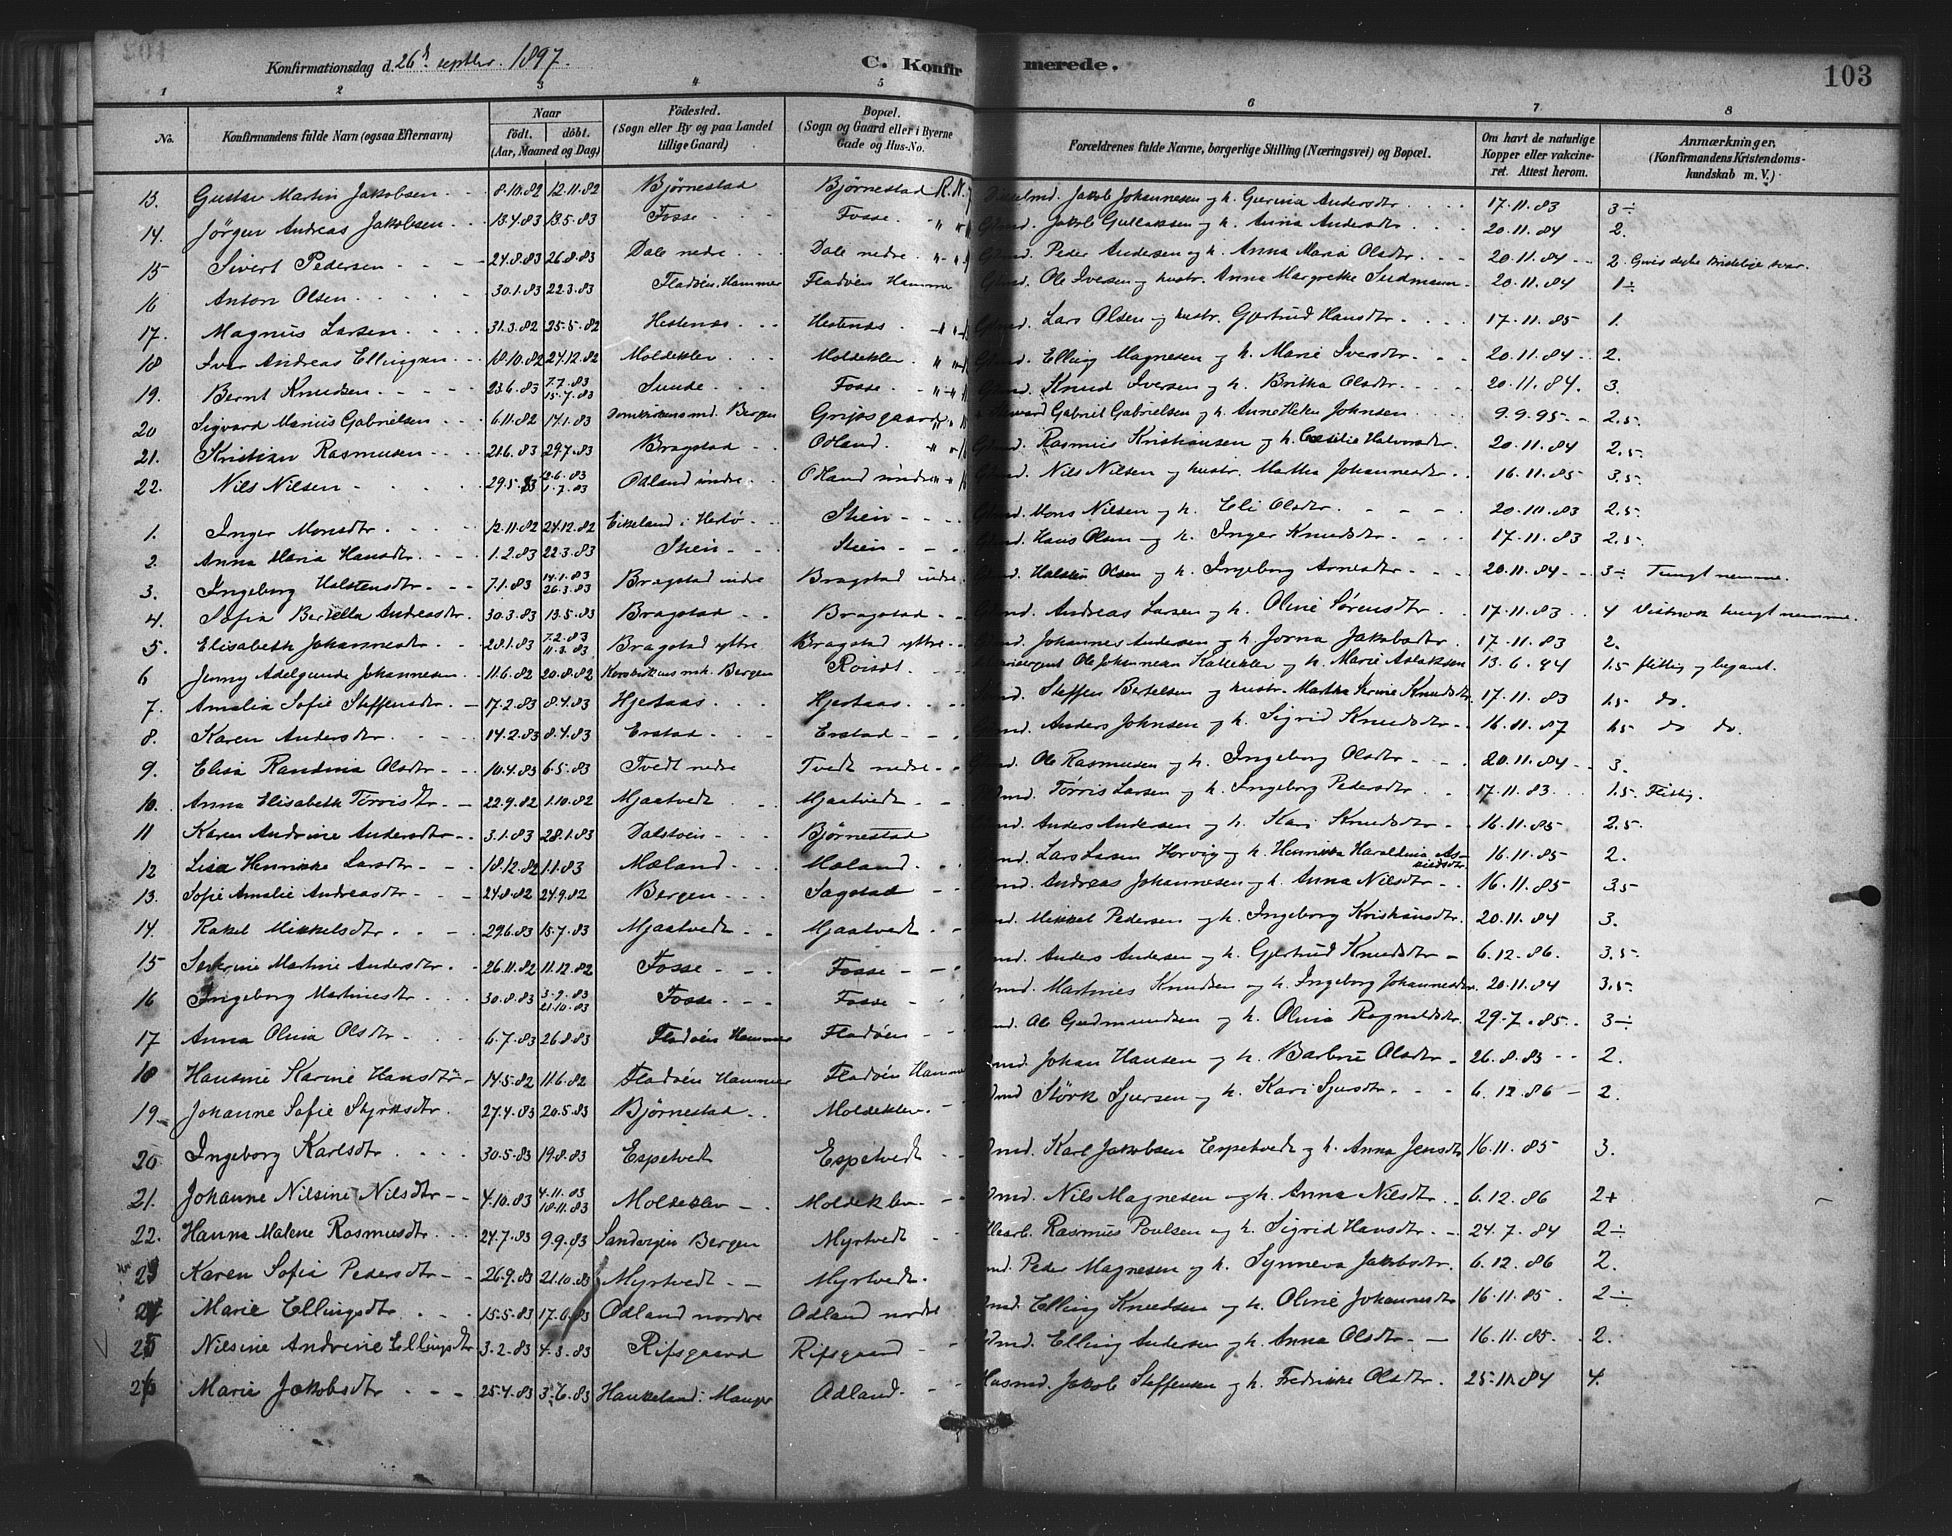 Konfirmationsdag d. 26d septbr. 1897. C. Konfirmerede. 103
1 2 3 4 5 6 7 8
No. Konfirmandens fulde Navn (ogsaa Efternavn) Naar födt. döbt. (Aar, Maaned og Dag) Födested. (Sogn eller By og paa Landet tillige Gaard) Bopæl. (Sogn og Gaard eller i Byerne Gade og Hus-No. Forældrenes fulde Navne, borgerlige Stilling (Næringsvei) og Bopæl. Om havt de naturlige Kopper eller vakcineret. Attest herom. Anmærkninger. (Konfirmandens Kristendomskundskab m. V.)
13. Gustav Martin Jakobsen 8.10.82 12.11.82 Bjørnestad Bjørnestad Jakob Johannesen og h. Gurina Andersdtr 17.11.83 3÷
14. Jörgen Andreas Jakobsen 13.4.83 13.5.83 Fosse Fosse Gbmd. Jakob Gullaksen og h. Anna Andersdtr 20.11.84 2.
15 Sivert Pedersen 24.8.83 26.8.83 Dale nedre Dale nedre Gbmd. Peder Andersen og h. Anna Maria Olsdtr 20.11.84 2.
16 Anton Olsen 30.1.83 22.3.83 Fladöen, Hammer Fladöen Hamme Gbmd. Ole Iversen og hustr. Anna Margrethe 20.11.84 1÷
17. Magnus Larsen 31.3.82 25.5.82 Hestenæs Hestenæs Gbmd. Lars Olsen og hustr. Gjertrud Hansdtr 17.11.85 1.
18 Iver Andreas Ellingsen 18.10.82 24.12.82 Moldeklev Moldeklev Gbmd. Elling Magnesen og h. Marie Iversdtr 20.11.84 2.
19. Bernt Knudsen 23.6.83 7.7.83 15.7.83 Sunde Fosse Gbmd. Knud Iversen og h. Britha Olsdtr 20.11.84. 3.
20 Sigvard Marius Gabrielsen 6.11.82 14.1.83 Bergen Gripsgaard Gabriel Gabrielsen og h. Anne Johnsen 9.9.95 2,5.
21. Kristian Rasmusen 21.6.83 29.7.83 Bragstad Odland Gbmd. Rasmus Kristiansen og h. Halvorsdtr. 20.11.84 2,5
22. Nils Nilsen 29.5.83 12.6.83 1.7.83 Odland indre Odland indre Gbmd. Nils Nilsen og hustr. Martha Johannesdtr 16.11.85 3,5
1. Inger Monsdtr 12.11.82 24.12.82 Eikeland i Herlö Skien Gbmd. Mons Nilsen og h. Eli Olsdtr 20.10.83 2,5
2. Anna Maria Hansdtr 1.2.83 22.3.83 Skien Skien Gbmd. Hans Olsen og h. Inger Knudsdtr 17.11.83 2,5
3. Ingeborg Halstensdtr 7.1.83 14.1.83 26.3.83 Bragstad indre Bragstad indre Gbmd. Halsten Olsen og h. Ingeborg Arnesdtr 20.11.84 3÷ Tungt nemme.
4. Sofia Bertella Andreasdtr 30.3.83 13.5.83 Bragstad Bragstad Gbmd. Andreas Larsen og h. Oline Sörensdtr 17.11.83 4 tungt nemme.
5. Elisabeth Johannesdtr 28.1.83 7.2.83 11.3.83 Bragstad yttre Bragstad yttre Gbmd. Johannes Andersen og h. Jorna Jakobsdtr 17.11.83 2.
6 Jenny Adelgunde Johannesen 11.6.82 20.8.82 Korskirkens mh. Bergen Ole Johannesen og h. Marie Aslaksen 13.6.84 1,5 flittig og begavet.
7. Amalia Sofie Steffensdtr 17.2.83 8.4.83 Hjertaas Hjertaas Gbmd. Steffen Bertelsen og hustr. Martha Knudsdtr 17.11.83 1,5 do.
8. Karen Andersdtr 14.2.83 8.4.83 Erstad Erstad Gbmd. Anders Johnsen og h. Sigrid Knudsdtr 16.11.87 1,5 do do.
9. Elisa Randina Olsdtr 10.4.83 6.5.83 Tvedt nedre Tvedt nedre Gbmd. Ole Rasmusen og h. Ingeborg Olsdtr 20.11.84 3.
10. Anna Elisabeth Törrisdtr 22.9.82 1.10.82 Mjaatvedt Mjaatvedt Gbmd. Törris Larsen og h. Ingeborg Pedersdtr 17.11.83 1,5 Flittig.
11 Karen Andrine Andersdtr 3.1.83 28.1.83 Dalstveis Bjørnestad Anders Andersen og h. Kari Knudsdtr 16.11.85 2,5
12 Lisa Henrikke Larsdtr 18.12.82 1.1.83 Mæland Mæland Gbmd. Lars Larsen Horvig og h. Henrikka Haraldina 16.11.85 2.
13. Sofie Amalie Andreasdtr 24.8.82 24.9.82 Bergen Sagstad Andreas Johannesen og h. Anna Nilsdtr 16.11.85 3,5
14. Rakel Mikkelsdtr 29.6.83 15.7.83 Mjaatvedt Mjaatvedt Gbmd. Mikkel Pedersen og h. Ingeborg Kristiansdtr. 20.11.84 3.
15 Severine Martine Andersdtr 26.11.82 11.12.82 Fosse Fosse Gbmd. Anders Andersen og h. Gjertrud Knudsdtr 6.12.86. 3,5
16 Ingeborg Martinesdtr 30.8.83 3.9.83 21.10.83 Fosse Fosse Gbmd. Martines Knudsen og h. Ingeborg Johannesdtr. 20.11.84 3,5
17 Anna Olina Olsdtr 6.7.83 26.8.83 Fladöen Hammer Fladöen Ole Gudmundsen og h. Olina Ragnaldsdtr 29.7.85 3÷
18 Hansine Karine Hansdtr 14.5.82 11.6.82 Fladöen Hammer Fladöen Hamme Gbmd. Johan Hansen og h. Barbro Olsdtr 26.8.83 2.
19. Johanne Sofie Styrksdtr 27.4.83 20.5.83 Bjørnestad Moldeklev Störk Sjursen og h. Kari Sjursdtr 6.12.86 2.
20 Ingeborg Karlsdtr 30.5.83 19.8.83 Espetvedt Espetvedt Gbmd. Karl Jakobsen Espetvedt og h. Anna Jensdtr 16.11.85 3.
21. Johanne Nilsine Nilsdtr 4.10.83 4.11.83 18.11.83 Moldeklev Moldeklev Gbmd. Nils Magnesen og h. Anna Nilsdtr 6.12.86 2+
22. Hanna Malene Rasmusdtr 24.7.83 9.9.83 Sandvigen Bergen Myrtvedt Rasmus Poulsen og h. Sigrid Hansdtr 24.7.84 2÷
23 Karen Sofia Pedersdtr 26.9.83 21.10.83 Myrtvedt Myrtvedt Peder Magnesen og h. Synneva Jakobsdtr 6.12.86 2.
24 Marie Ellingsdtr 15.5.83 17.6.83 Odland nordre Odland nordre Gbmd. Elling Knudsen og h. Oline Johannesdtr 16.11.85. 2÷
25 Nilsine Andrine Ellingsdtr 3.2.83 4.3.83 Rifsgaard Rifsgaard Gbmd. Elling Andersen og h. Anna Olsdtr 16.11.85. 2.
26 Marie Jakobsdtr 25.4.83 3.6.83 Haukeland: Manger Odland Husmd. Jakob Steffensen og h. Fredrikke Olsdtr 25.11.84 4.